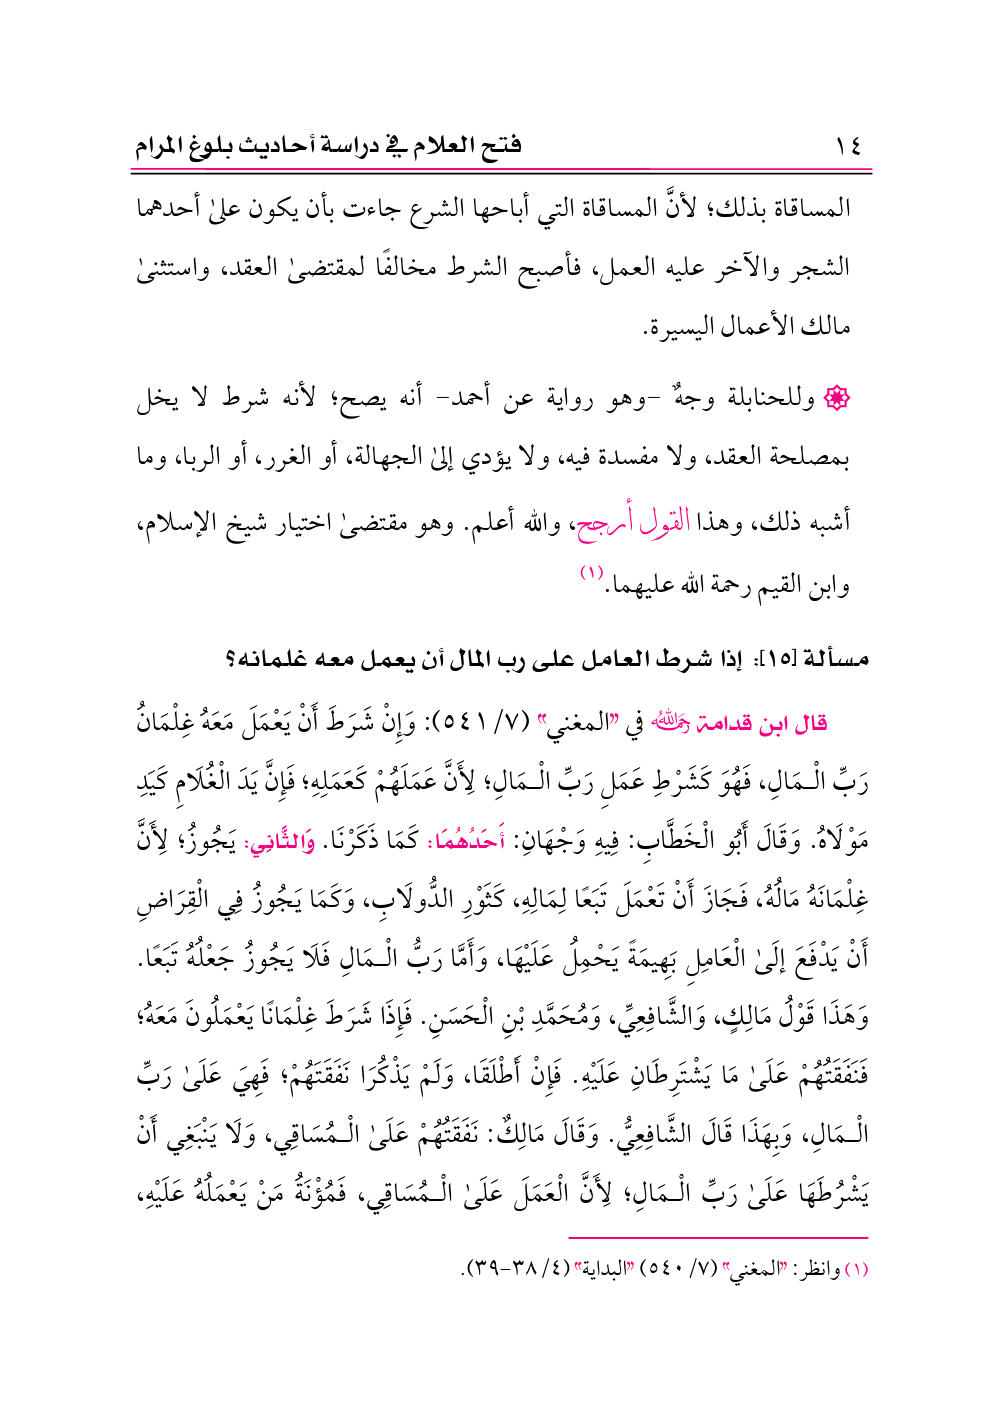 ١٤ فتح العلام في دراسة أحاديث بلوغ المرام
المساقاة بذلك؛ لأنَّ المساقاة التي أباحها الشرع جاءت بأن يكون علىٰ أحدهما
الشجر والآخر عليه العمل، فأصبح الشرط مخالفًا لمقتضىٰ العقد، واستثنىٰ
مالك الأعمال اليسيرة.
وللحنابلة وجهٌ -وهو رواية عن أحمد- أنه يصح؛ لأنه شرط لا يخل
بمصلحة العقد، ولا مفسدة فيه، ولا يؤدي إلىٰ الجهالة، أو الغرر، أو الربا، وما
أشبه ذلك، وهذا القول أرجح، والله أعلم. وهو مقتضىٰ اختيار شيخ الإسلام،
وابن القيم رحمة الله عليهما.(١)
مسألة [١٥]: إذا شرط العامل على رب المال أن يعمل معه غلمانه؟
قال ابن قدامة رحمه الله في "المغني" (٧/ ٥٤١): وَإِنْ شَرَطَ أَنْ يَعْمَلَ مَعَهُ غِلْمَانُ
رَبِّ الْـمَالِ، فَهُوَ كَشَرْطِ عَمَلِ رَبِّ الْـمَالِ؛ لِأَنَّ عَمَلَهُمْ كَعَمَلِهِ؛ فَإِنَّ يَدَ الْغُلَامِ كَيَدِ
مَوْلَاهُ. وَقَالَ أَبُو الْخَطَّابِ: فِيهِ وَجْهَانِ: أَحَدُهُمَا: كَمَا ذَكَرْنَا. وَالثَّانِي: يَجُوزُ؛ لِأَنَّ
غِلْمَانَهُ مَالُهُ، فَجَازَ أَنْ تَعْمَلَ تَبَعًا لِمَالِهِ، كَثَوْرِ الدُّولَابِ، وَكَمَا يَجُوزُ فِي الْقِرَاضِ
أَنْ يَدْفَعَ إلَىٰ الْعَامِلِ بَهِيمَةً يَحْمِلُ عَلَيْهَا، وَأَمَّا رَبُّ الْـمَالِ فَلَا يَجُوزُ جَعْلُهُ تَبَعًا.
وَهَذَا قَوْلُ مَالِكٍ، وَالشَّافِعِيِّ، وَمُحَمَّدِ بْنِ الْحَسَنِ. فَإِذَا شَرَطَ غِلْمَانًا يَعْمَلُونَ مَعَهُ؛
فَنَفَقَتُهُمْ عَلَىٰ مَا يَشْتَرِطَانِ عَلَيْهِ. فَإِنْ أَطْلَقَا، وَلَمْ يَذْكُرَا نَفَقَتَهُمْ؛ فَهِيَ عَلَىٰ رَبِّ
الْـمَالِ، وَبِهَذَا قَالَ الشَّافِعِيُّ. وَقَالَ مَالِكٌ: نَفَقَتُهُمْ عَلَىٰ الْـمُسَاقِي، وَلَا يَنْبَغِي أَنْ
يَشْرُطَهَا عَلَىٰ رَبِّ الْـمَالِ؛ لِأَنَّ الْعَمَلَ عَلَىٰ الْـمُسَاقِي، فَمُؤْنَةُ مَنْ يَعْمَلُهُ عَلَيْهِ،
(١) وانظر: "المغني" (٧/ ٥٤٠) "البداية" (٤/ ٣٨-٣٩).